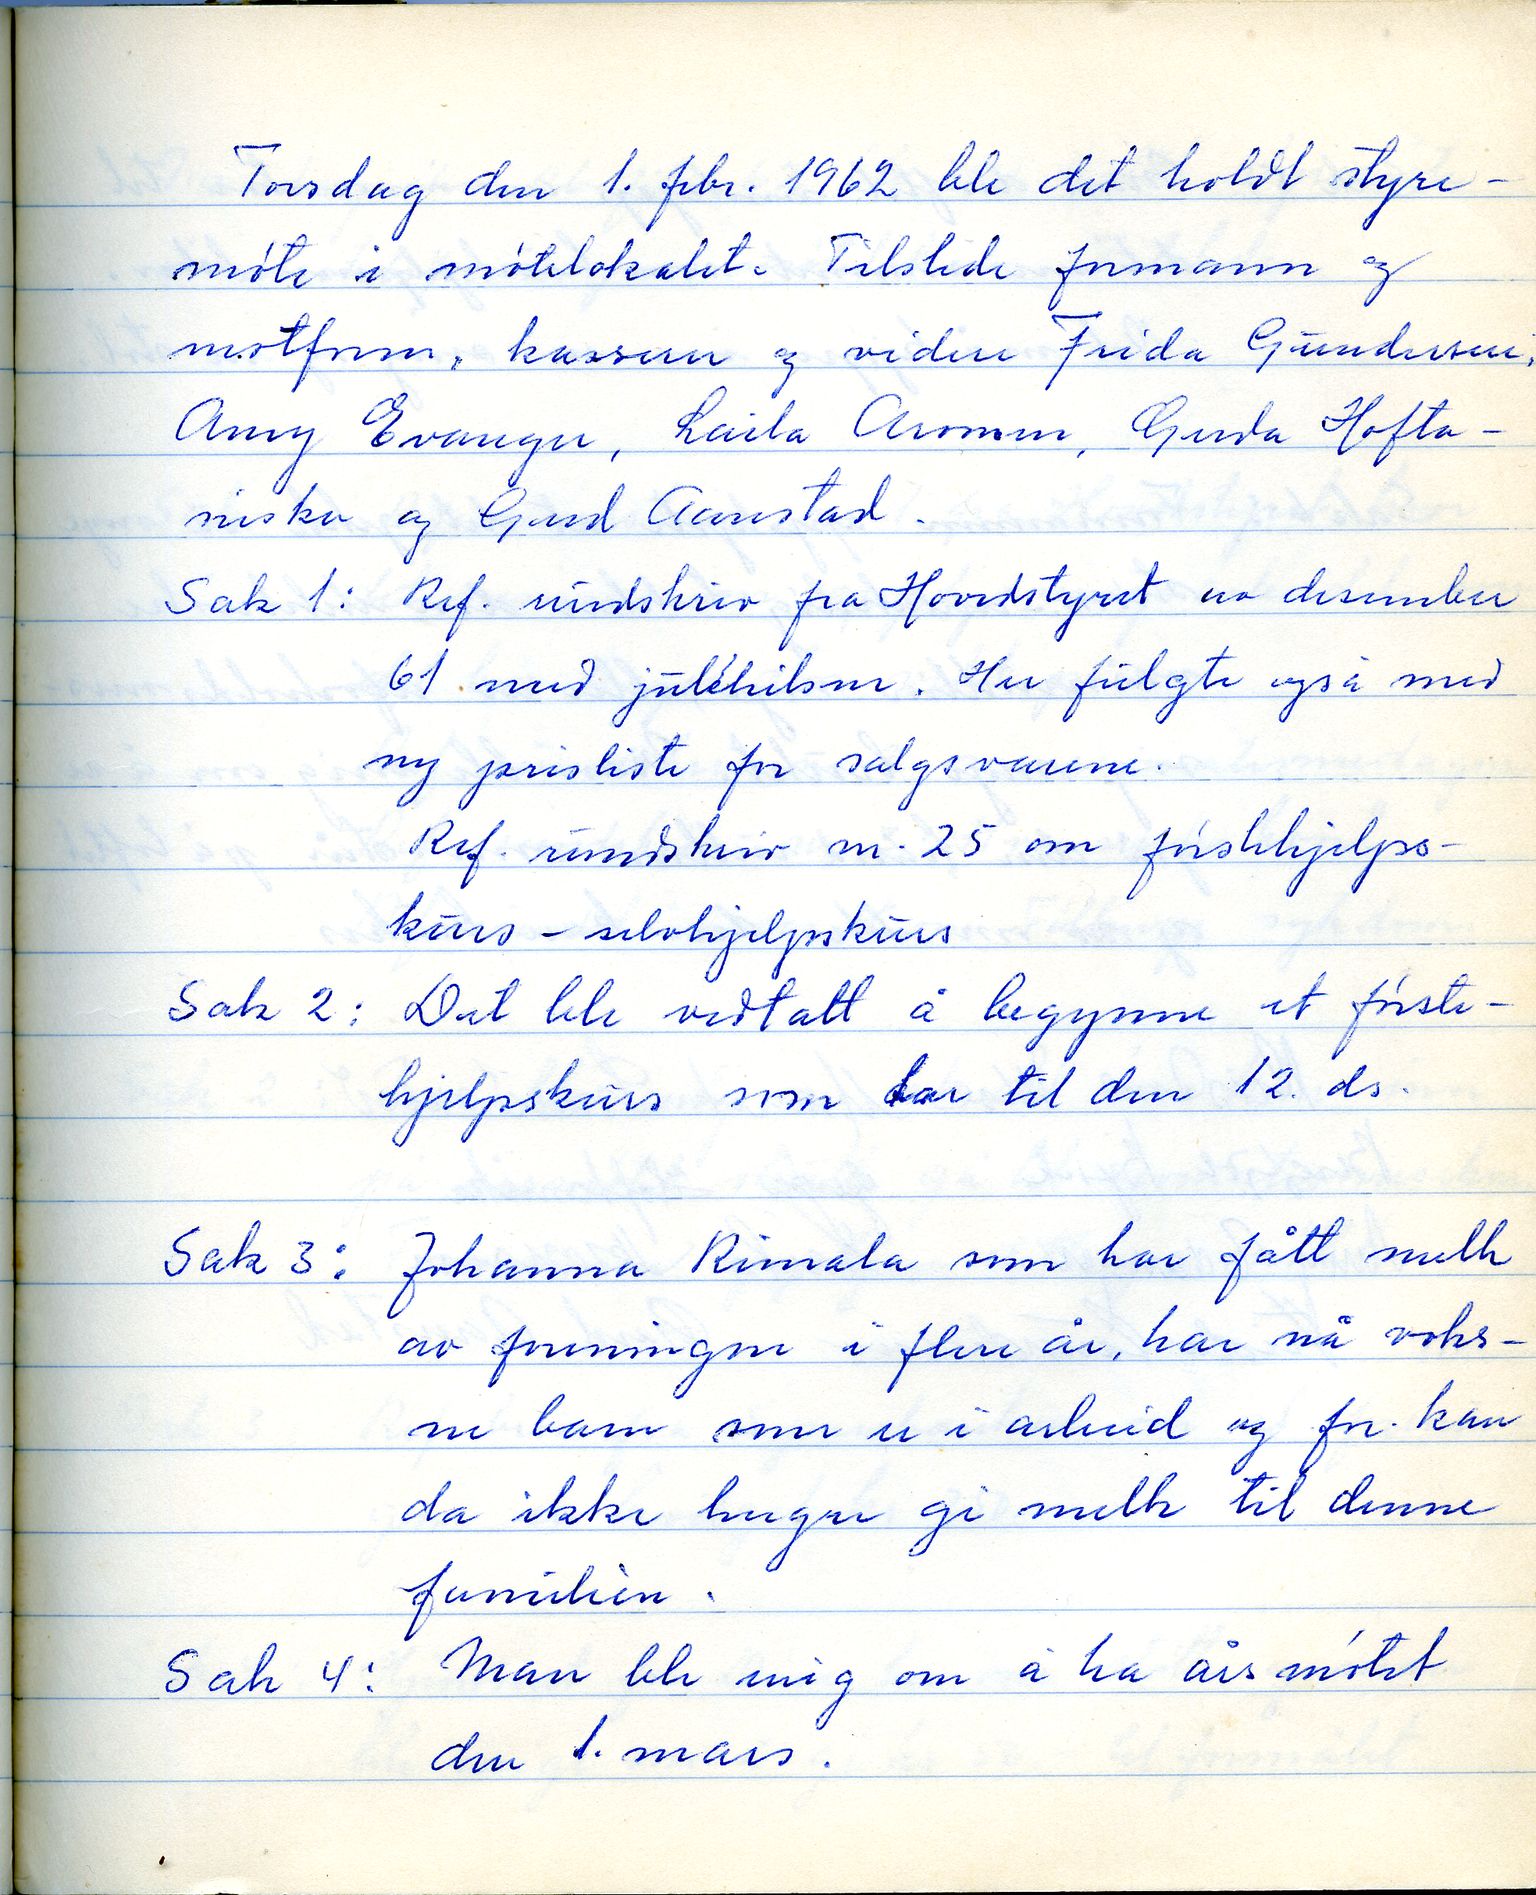 Torsdag den 1. febr. 1962 ble det holdt styre-
møte i møtelokalet. Tilstede formann og
motform, kasserer og videre Frida Gundersen,
Amy Evanger, Laila Aronsen, Gerda Hofta-
niska og Gerd Aarestad.
Sak 1: Ref. rundskriv fra Hovedstyret av desember
61 med julehilsen. Her fulgte også med
ny prisliste for salgsvarene.
Ref. rundskriv nr. 25 om førstehjelps-
kurs - selvhjelpskurs
Sak 2: Det ble vedtatt å begynne et første-
hjelpskurs som tar til den 12. ds.
Sak 3: Johanna Rimala som har fått melk
av foreningen i flere år, har nå voks-
ne barn som er i arbeid og for. kan
da ikke lenger gi melk til denne
familien.
Sak 4: Man ble enig om å ha årsmøtet
den 1. mars.